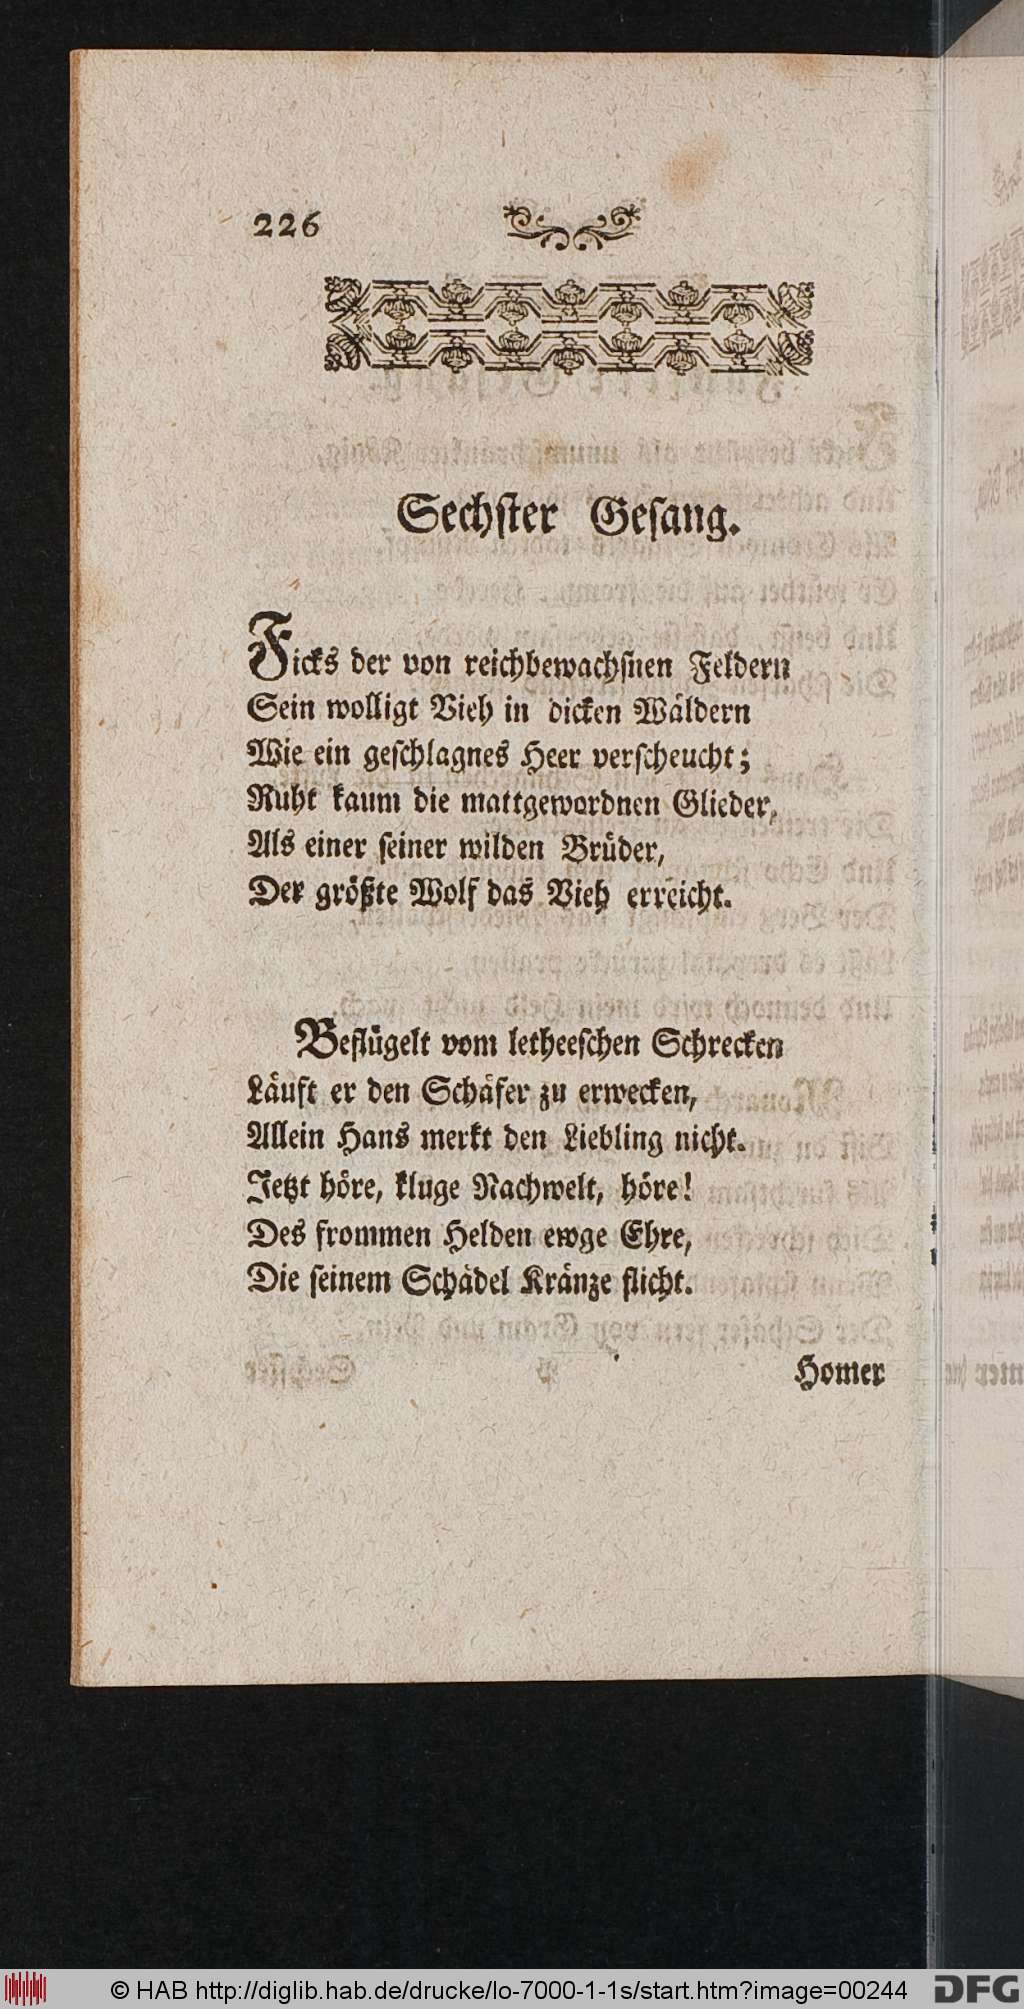 226
Sechster Gesang.
Ficks der von reichbewachsnen Feldern
Sein wolligt Vieh in dicken Wäldern
Wie ein geschlagnes Heer verscheucht;
Ruht kaum die mattgewordnen Glieder,
Als einer seiner wilden Brüder,
Der größte Wolf das Vieh erreicht.
Beflügelt vom letheeschen Schrecken
Läuft er den Schäfer zu erwecken,
Allein Hans merkt den Liebling nicht.
Jetzt höre, kluge Nachwelt, höre!
Des frommen Helden ewge Ehre,
Die seinem Schädel Kränze flicht.
Homer
© HAB http://diglib.hab.de/drucke/lo-7000-1-1s/start.htm?image=00244
DFG